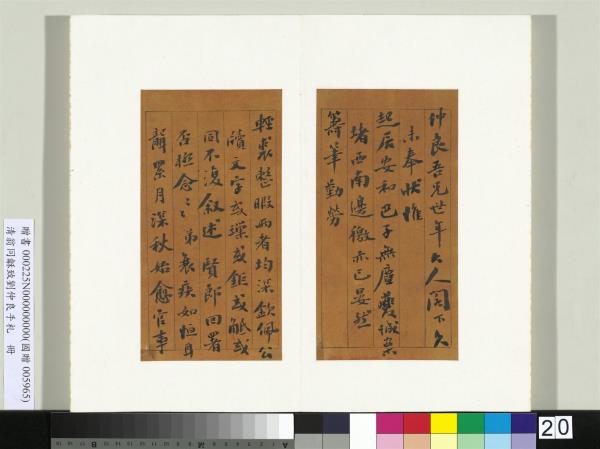 仲良吾兄世年大人閣下久
未奉狀惟
起居安和巴子無塵夔誠案
堵西南邊徼亦已晏然
籌筆勤勞
輕裘整暇兩者均深欽佩公
牘文字或
同不復叙述賢郎回署
否極念念弟衰疾如恒耳
累月深秋始愈官事
贈書 000225N000000000(國贈 005965)
清翁同龢致劉仲良手札 冊
20